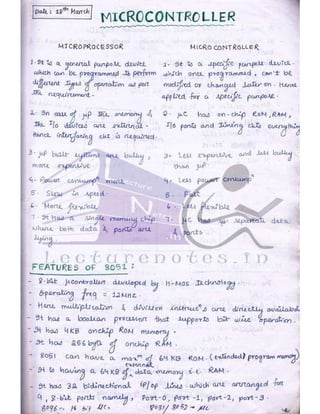 Date: 18th March
MICROCONTROLLER
MICROPROCESSOR
1. It is a general purpose device
which can be programmed to perform
different types of operation as per
the requirement.
2. In case of µp the memory &
the I/o devices are external.
Hence interfacing ckt is required.
3. µp built systems are bulky,
more expensive
4. Power consump more
5. Slow in speed.
6. More flexible.
7. It has a single memory chip
where both data & ports are
lying.
MICROCONTROLLER
1. It is a specific purpose device.
which once programmed, can't be
modified or changed later on. Hence
applied for a specific purpose.
2. µC has on-chip ROM, RAM,
I/o ports and timing ckts everything
3. Less expensive and less bulky
than µp
4. Less power consump
5. Fast
6. Less flexible
7. µC has separate data
& ports.
Lecturenotes.in
FEATURES OF 8051:
- 8-bit µcontroller developed by H-MOS Technology.
- Operating freq = 12MHz.
- Here multiplication & division instruc's are directly available
- It has a boolean processor that supports bit wise operation.
- It has 4KB onchip ROM memory.
- It has 256 byte of onchip RAM.
- 8051 can have a max of 64 KB ROM. (extended) program memory
- It is having a 64 KB external data memory i.e. RAM.
- It has 32 bidirectional IP/OP lines which are arranged for
4, 8-bit ports namely, Port-0, Port-1, port-2, port-3.
8096 - 16 bit µC. 8031/8052 → µC